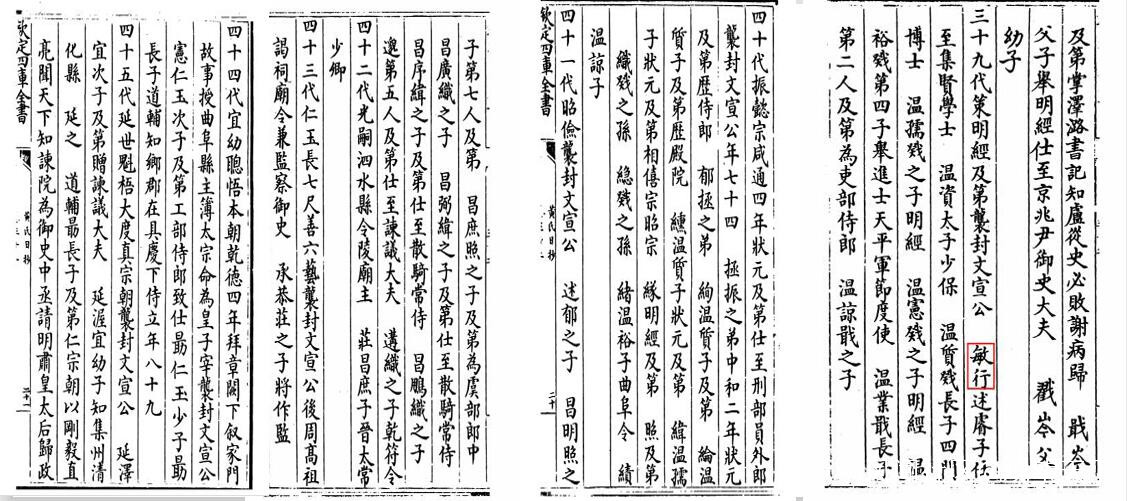 及第掌澤潞書記知盧從史必敗謝病歸　戢岑
父子舉明經仕至京兆尹御史大夫　戳岑父
幼子
三十九代策明經及第襲封文宣公　敏行述睿子任
至集賢學士　温資太子少保　温質戣長子四門
博士　温孺戣之子明經　温憲戣之子明經
裕戣第四子舉進士天平軍節度使　温業戢長子
第二人及第為吏部侍郎　温諒戢之子
四十代振懿宗咸通四年狀元及第仕至刑部員外郎
襲封文宣公年七十四　拯振之弟中和二年狀元
及第歴侍郎　郁拯之弟　絢温質子及第　綸温
質子及第歴殿院　纁温質子狀元及第　緯温孺
子狀元及第相僖宗昭宗　緣明經及第　照及第
織戣之孫　緫戣之孫　緒温裕子曲阜令　績
温諒子
四十一代昭儉襲封文宣公　述郁之子　昌明照之
欽定四庫全書
黄氏日抄
二十
子第七人及第　昌庶照之子及第為虞部郎中
昌廣織之子　昌弼緯之子及第仕至散騎常侍
昌序緯之子及第仕至散騎常侍　昌鵬織之子
邈第五人及第仕至諫議大夫　遘織之子乾符令
四十二代光嗣泗水縣令陵廟主　莊昌庶子晉太常
少卿
四十三代仁玉長七尺善六藝襲封文宣公後周髙祖
謁祠廟令兼監察御史　承恭莊之子將作監
四十四代宜幼聰悟本朝乾德四年拜章闕下叙家門
故事授曲阜縣主簿太宗命為皇子宰襲封文宣公
憲仁玉次子及第工部侍郎致仕勗仁玉少子勗
長子道輔知鄉郡在具慶下侍立年八十九
四十五代延世魁梧大度真宗朝襲封文宣公　延澤
宜次子及第贈諫議大夫　延渥宜幼子知集州清
化縣　延之　道輔最長子及第仁宗朝以剛毅直
亮聞天下知諫院為御史中丞請明肅皇太后歸政
欽定四庫全書
黄氏日抄
二十一